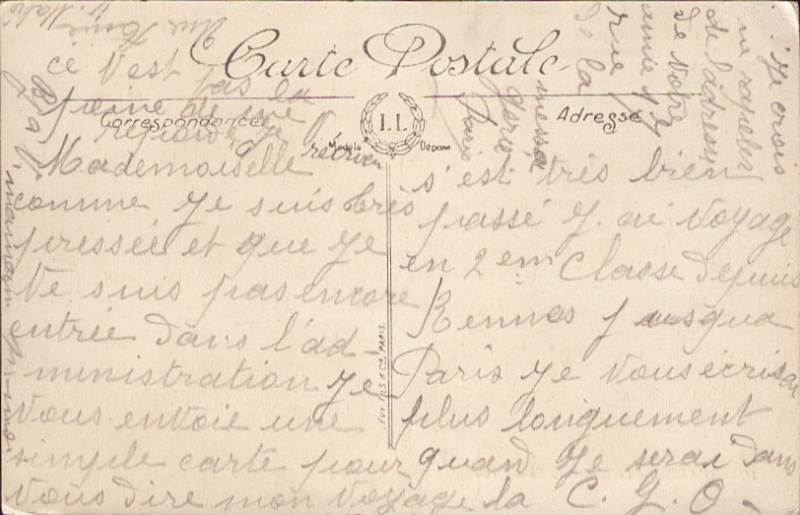 Carte Postale
Correspondance
Adresse
LL
Modèle Déposé
ce n'est pas la
peine de me
répondre je
récrirai
Mademoiselle
comme je suis très
pressée et que je
ne suis pas encore
entrée dans l'ad-
ministration je
vous envoie une
simple carte pour
vous dire mon voyage
s'est très bien
passé j. ai voyagé
en 2em classe depuis
Rennes jusqua
Paris je vous écrirai
plus longuement
quand je serai dans
la C. G. O
Je crois
me rapeler
de l'adresse
de votre
amie
rue
de la
Paris
maman
LEVY FILS & Cie PARIS